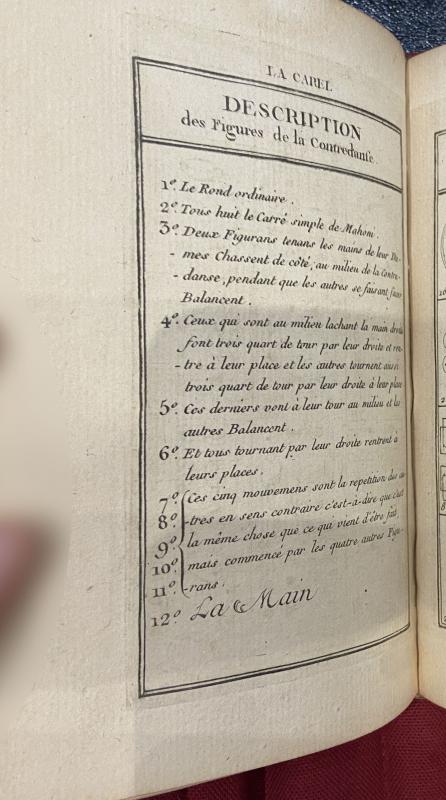 LA CAREL
DESCRIPTION
des Figures de la Contredanse
1º. Le Rond ordinaire.
2º. Tous huit le Carré simple de Mahoni
3º. Deux Figurans tenans les mains de leur Da-
- mes Chassent de côté, au milieu de la Contre-
- danse, pendant que les autres se faisant face
Balancent.
4º. Ceux qui sont au milieu lachant la main droite
font trois quart de tour par leur droite et ren-
- tre à leur place et les autres tournent aussi
trois quart de tour par leur droite à leur place
5º. Ces derniers vont à leur tour au milieu et les
autres Balancent.
6º. Et tous tournant par leur droite rentrent à
leurs places.
7º. Ces cinq mouvemens sont la repetition des au
8º. -tres en sens contraire c'est-à-dire que c'est
9º. la même chose que ce qui vient d'être fait,
10º. mais commencé par les quatre autres Figu-
11º. -rans.
12º. La Main